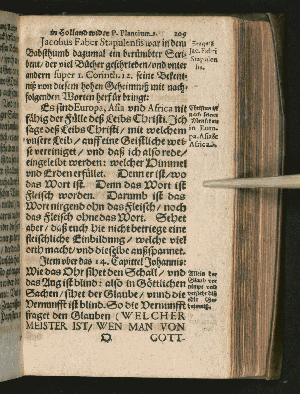 in Holland wider P. Plancium. 209
Jacobus Faber Stapulensis war in dem
Babsthumb dazumal ein berümbter Scri-
bent, der viel Bücher geschrieben/ und unter
andern super 1. Corinth. 12. seine Bekent-
niß von diesem hohen Geheimniß mit nach-
folgenden Worten herfür bringt:
Es sind Europa, Asia und Africa nit
fähig der Fülle deß Leibs Christi/ Ich
sage deß Leibs Christi/ mit welchem
unsere Leib/ auff eine Geistliche weise
vereiniget/ und daß ich also rede/
eingeleibt werden: welcher Himmel
und Erden erfüllet. Denn er ist/ wo
das Wort ist. Denn das Wort ist
Fleisch worden. Darumb ist das
Wort nirgend ohn das Fleisch/ noch
das Fleisch ohne das Wort. Sehet
aber/ daß euch hie nicht betriege eine
fleischliche Einbildung/ welche viel
orth macht/ und dieselbe außspannet.
Item uber das 14. Capittel Johannis:
Wie das Ohr sihet den Schall/ und
das Aug ist blind: also in Göttlichen
Sachen/ sihet der Glaube/ unnd die
Vernunfft ist blind. So die Vernunfft
fraget den Glauben (WELCHER
MEISTER IST/ WEN MAN VON
O GOTT-
Jac. Fabri
Stapulen
sis.
Christus ist
nach seiner
Menschheit
in Euro-
pa, Asia &
Africa.
Allein der
Glaub ver-